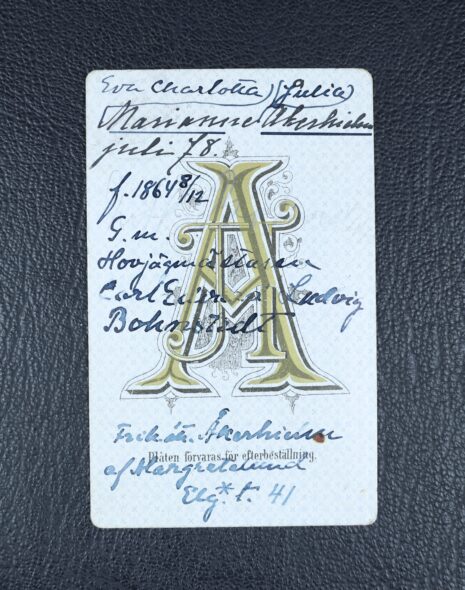 Eva Charlotta (Julia)
Marianne Åkerhielm
juli 78.
f. 1864 8/12
G. m.
Hovjägmästaren
Carl Edvard Ludvig
Bohnstedt
A
Frih. ätt. Åkerhielm
Plåten förvaras för efterbeställning.
af Margretelund
Elg. t. 41